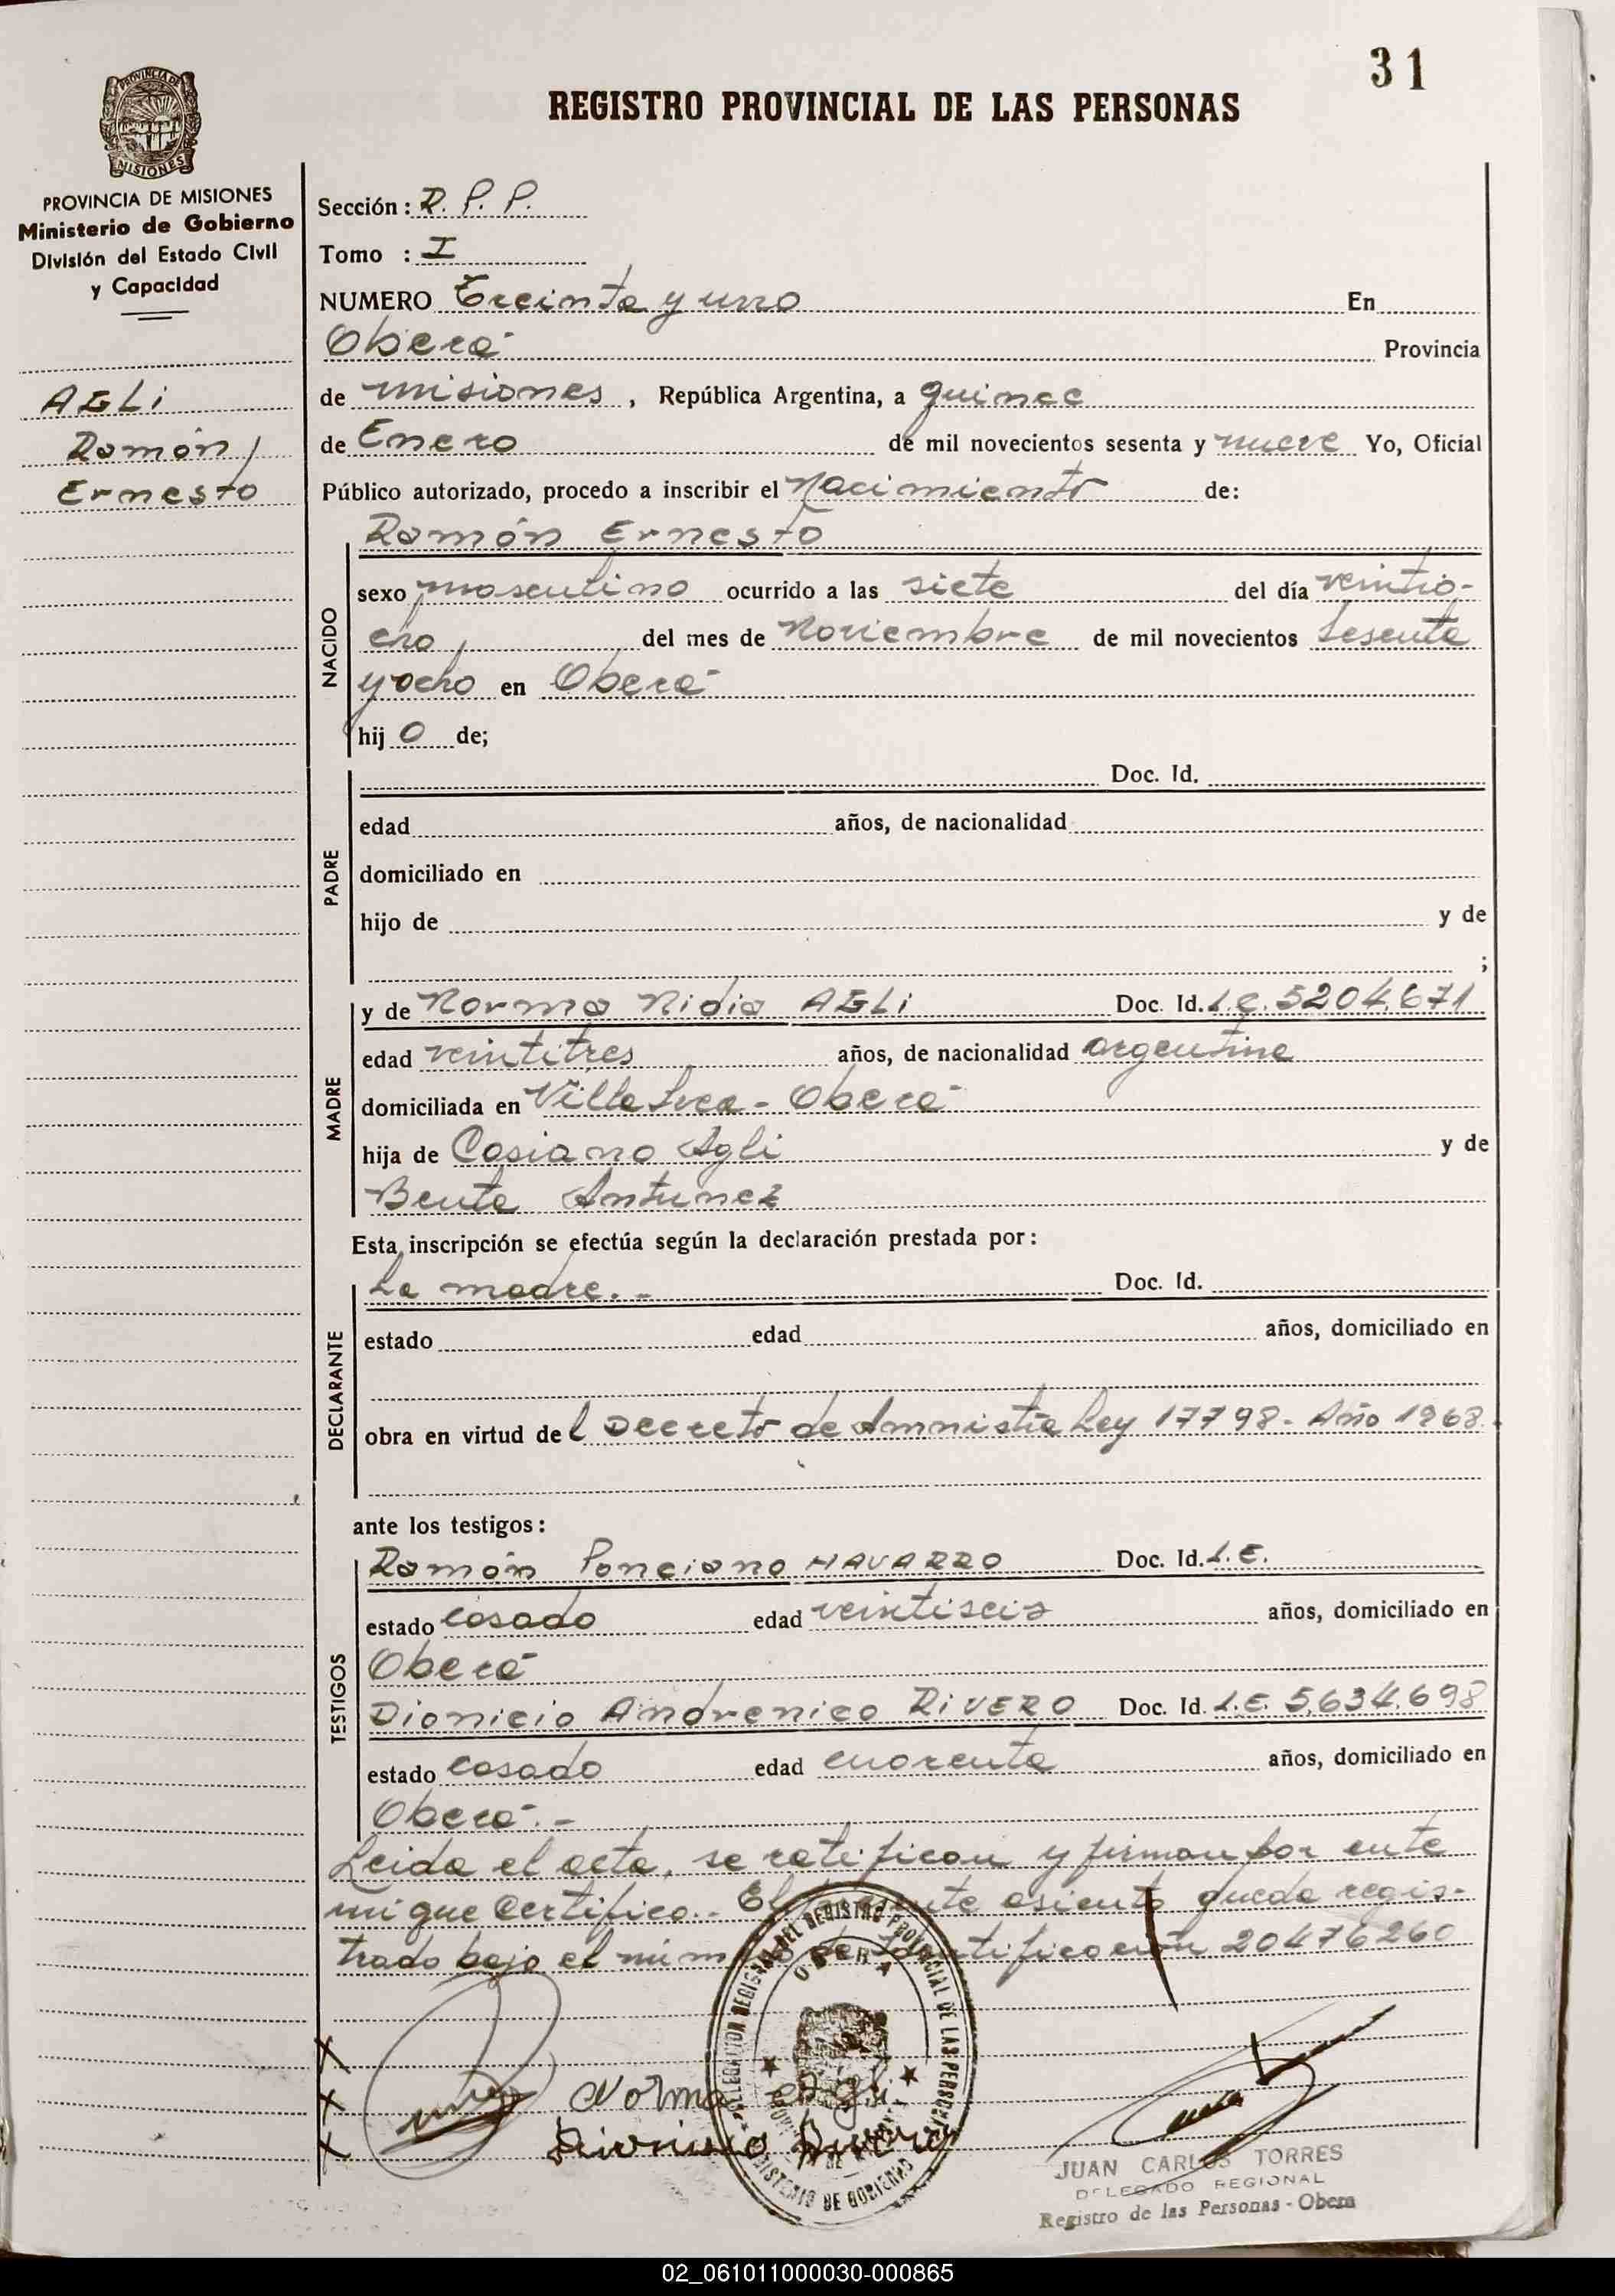 31
REGISTRO PROVINCIAL DE LAS PERSONAS
PROVINCIA DE MISIONES
PROVINCIA DE MISIONES
Ministerio de Gobierno
División del Estado Civil
y Capacidad
AGLi
Ramón
Ernesto
Sección: R. P. P.
Tomo : I
NUMERO Treinta y uno En
Oberá Provincia
de misiones, República Argentina, a quince
de Enero de mil novecientos sesenta y nueve Yo, Oficial
Público autorizado, procedo a inscribir el Nacimiento de:
Ramón Ernesto
NACIDO
sexo masculino ocurrido a las siete del día veintio-
cho del mes de Noviembre de mil novecientos sesenta
y ocho en Oberá
hij o de;
PADRE
Doc. Id.
edad años, de nacionalidad
domiciliado en
hijo de y de
;
MADRE
y de Norma Nidia AGLi Doc. Id. L.C. 5204.671
edad veintitres años, de nacionalidad argentina
domiciliada en Villa - Oberá
hija de Casiano Agli y de
Benta Antunez
Esta inscripción se efectúa según la declaración prestada por:
DECLARANTE
La madre.- Doc. Id.
estado edad años, domiciliado en
obra en virtud del Decreto de Amnistía Ley 17798- Año 1968.
ante los testigos:
TESTIGOS
Ramón Ponciano NAVARRO Doc. Id. L.E.
estado casado edad veintiseis años, domiciliado en
Oberá
Dionicio Andrenico RiVERO Doc. Id. L.E. 5,634.698
estado casado edad cuarenta años, domiciliado en
Oberá.-
Leida el acta, se ratifican y firman por ante
mi que Certifico.- El presente asiento queda regis-
trado bajo el número de Identificación 20476260
DELEGACION REGISTRO DEL REGISTRO PROVINCIAL DE LAS PERSONAS
OBERA
MINISTERIO DE GOBIERNO
Norma Agli
Dionicio Rivero
JUAN CARLOS TORRES
DELEGADO REGIONAL
Registro de las Personas - Obera
02_061011000030-000865